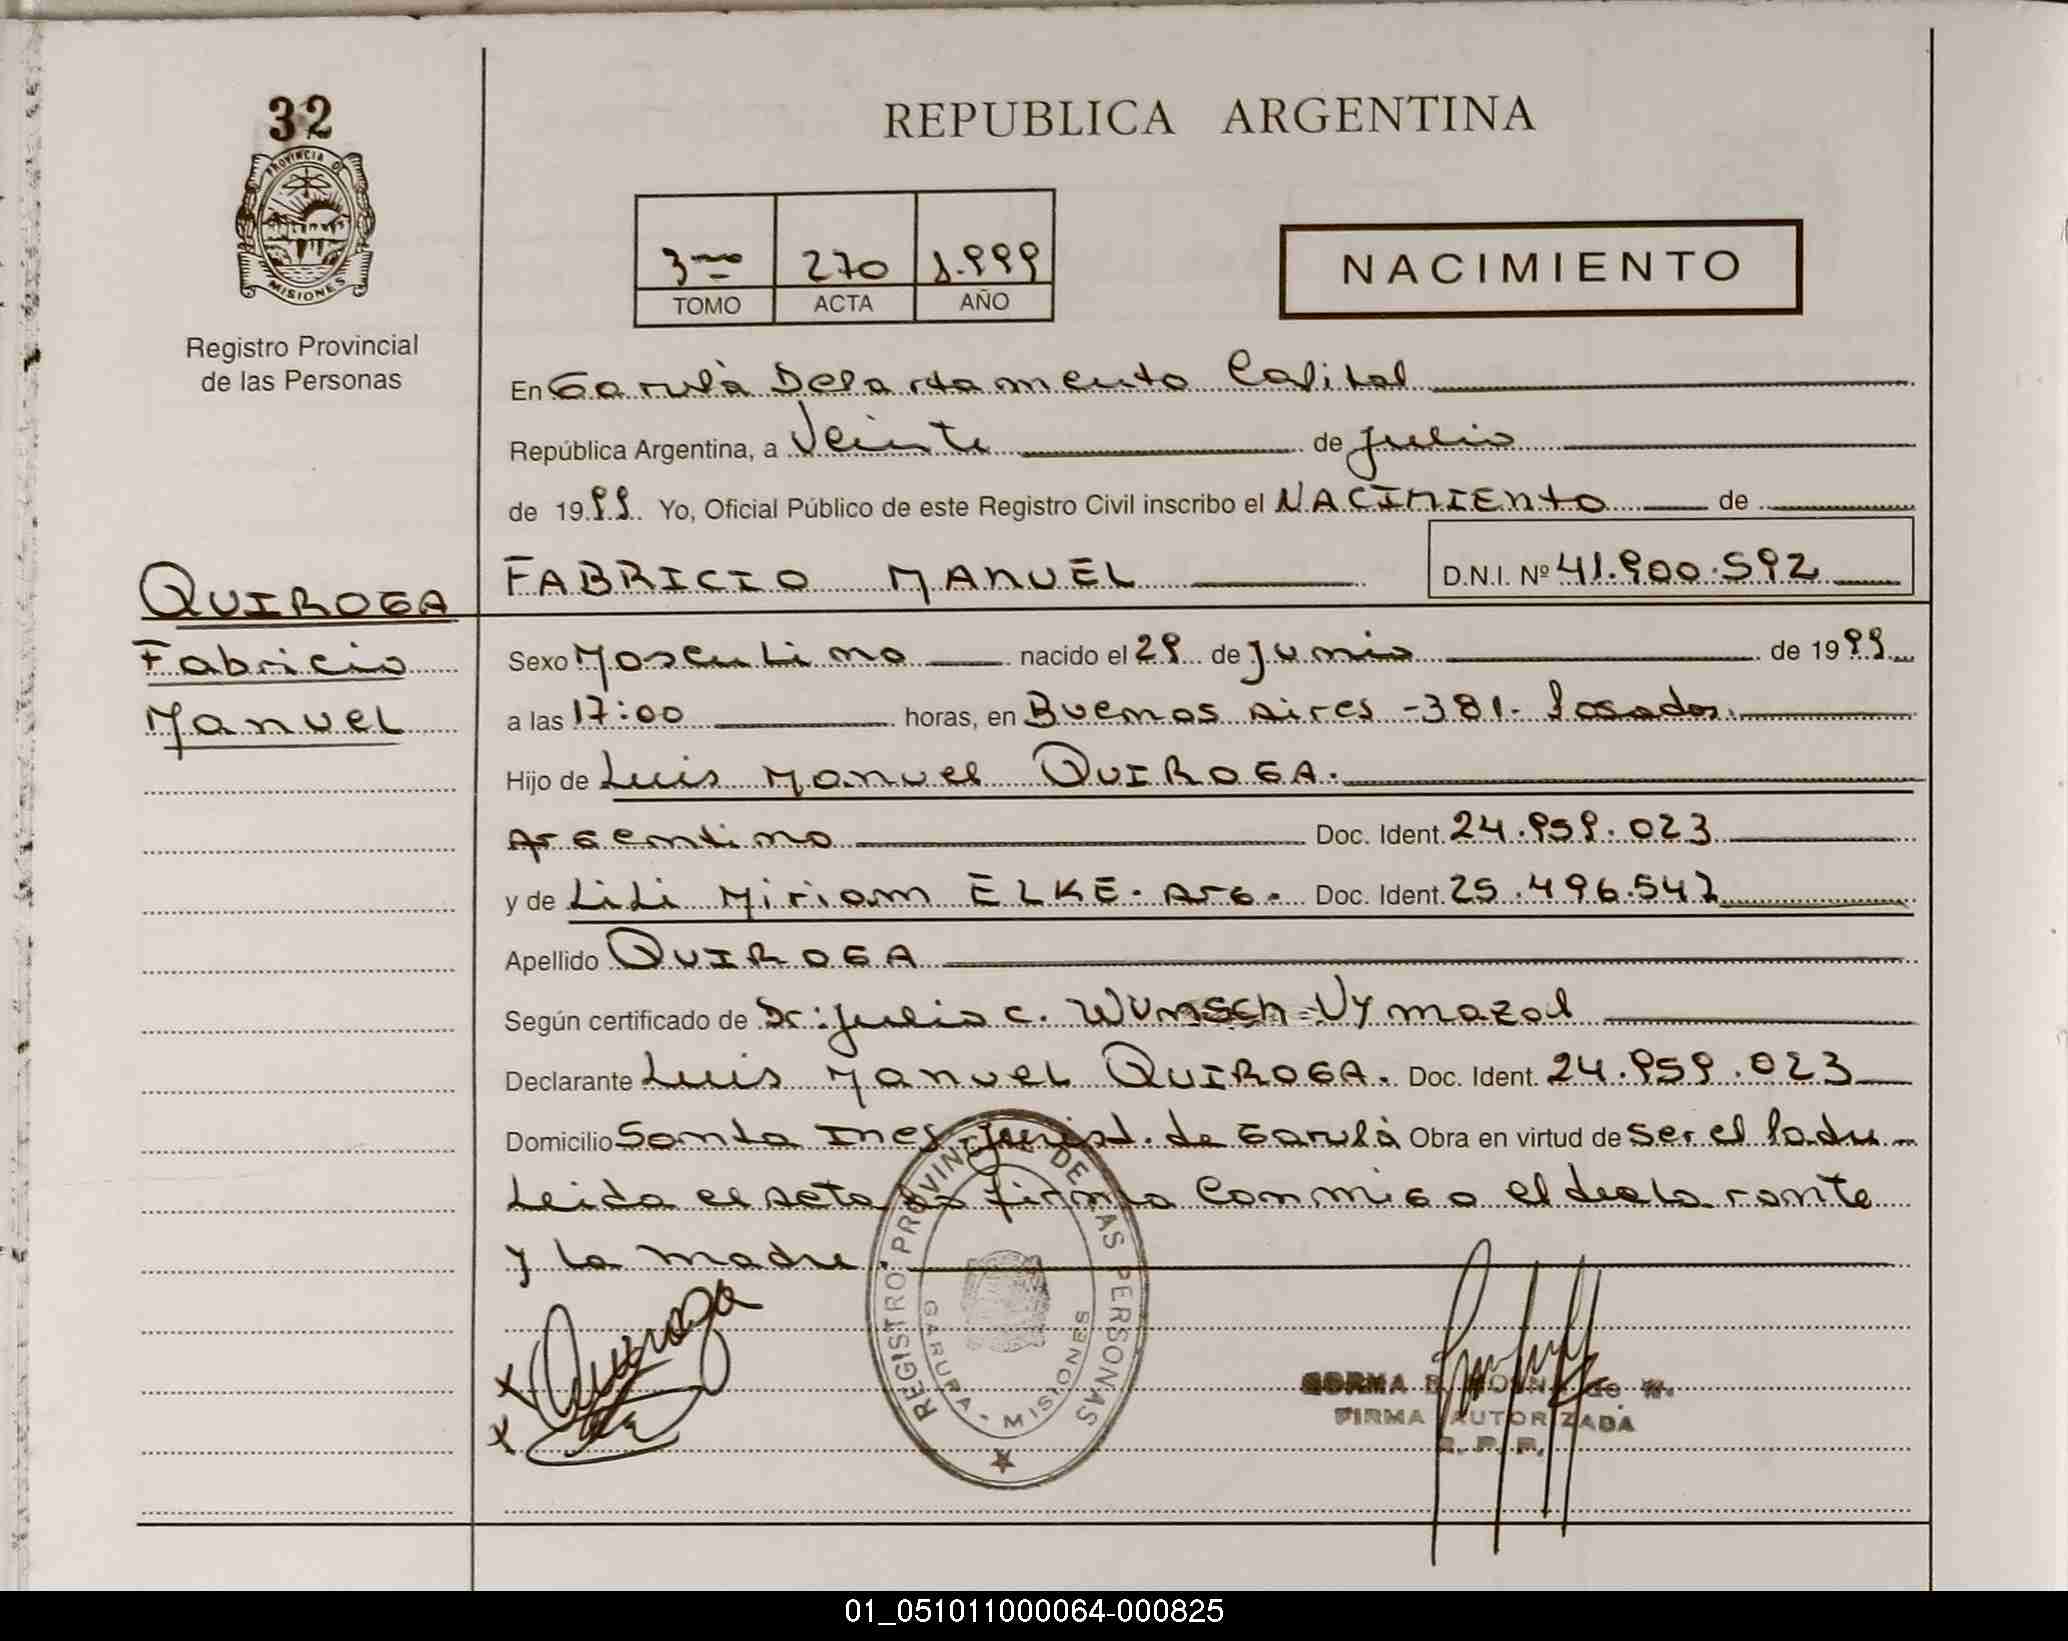 32
PROVINCIA DE
MISIONES
Registro Provincial
de las Personas
REPUBLICA ARGENTINA
3ro 270 1.999
TOMO ACTA AÑO
NACIMIENTO
En Garupá Departamento Capital
República Argentina, a Veinte de julio
de 1999 Yo, Oficial Público de este Registro Civil inscribo el NACIMIENTO de
FABRICIO MANUEL D.N.I. Nº 41.900.592
QUIROGA
Fabricio
Manuel
Sexo Masculino nacido el 29 de junio de 1999
a las 17:00 horas, en Buenos Aires -381- Posadas.
Hijo de Luis Manuel QUIROGA.
Argentino Doc. Ident. 24.959.023
y de Lili Miriam ELKE. Arg. Doc. Ident. 25.496.547
Apellido QUIROGA
Según certificado de Dr: Julio C. Wunsch=Vymazal
Declarante Luis Manuel QUIROGA. Doc. Ident. 24.959.023
Domicilio Santa Ines-Jurisd. de Garupá Obra en virtud de ser el padre
Leida el acta la firma conmigo el declarante
y la madre.
x Quiroga
x
REGISTRO PROVINCIAL DE LAS PERSONAS
GARUPA - MISIONES
NORMA B. de W.
FIRMA AUTORIZADA
R. P. P.
01_051011000064-000825